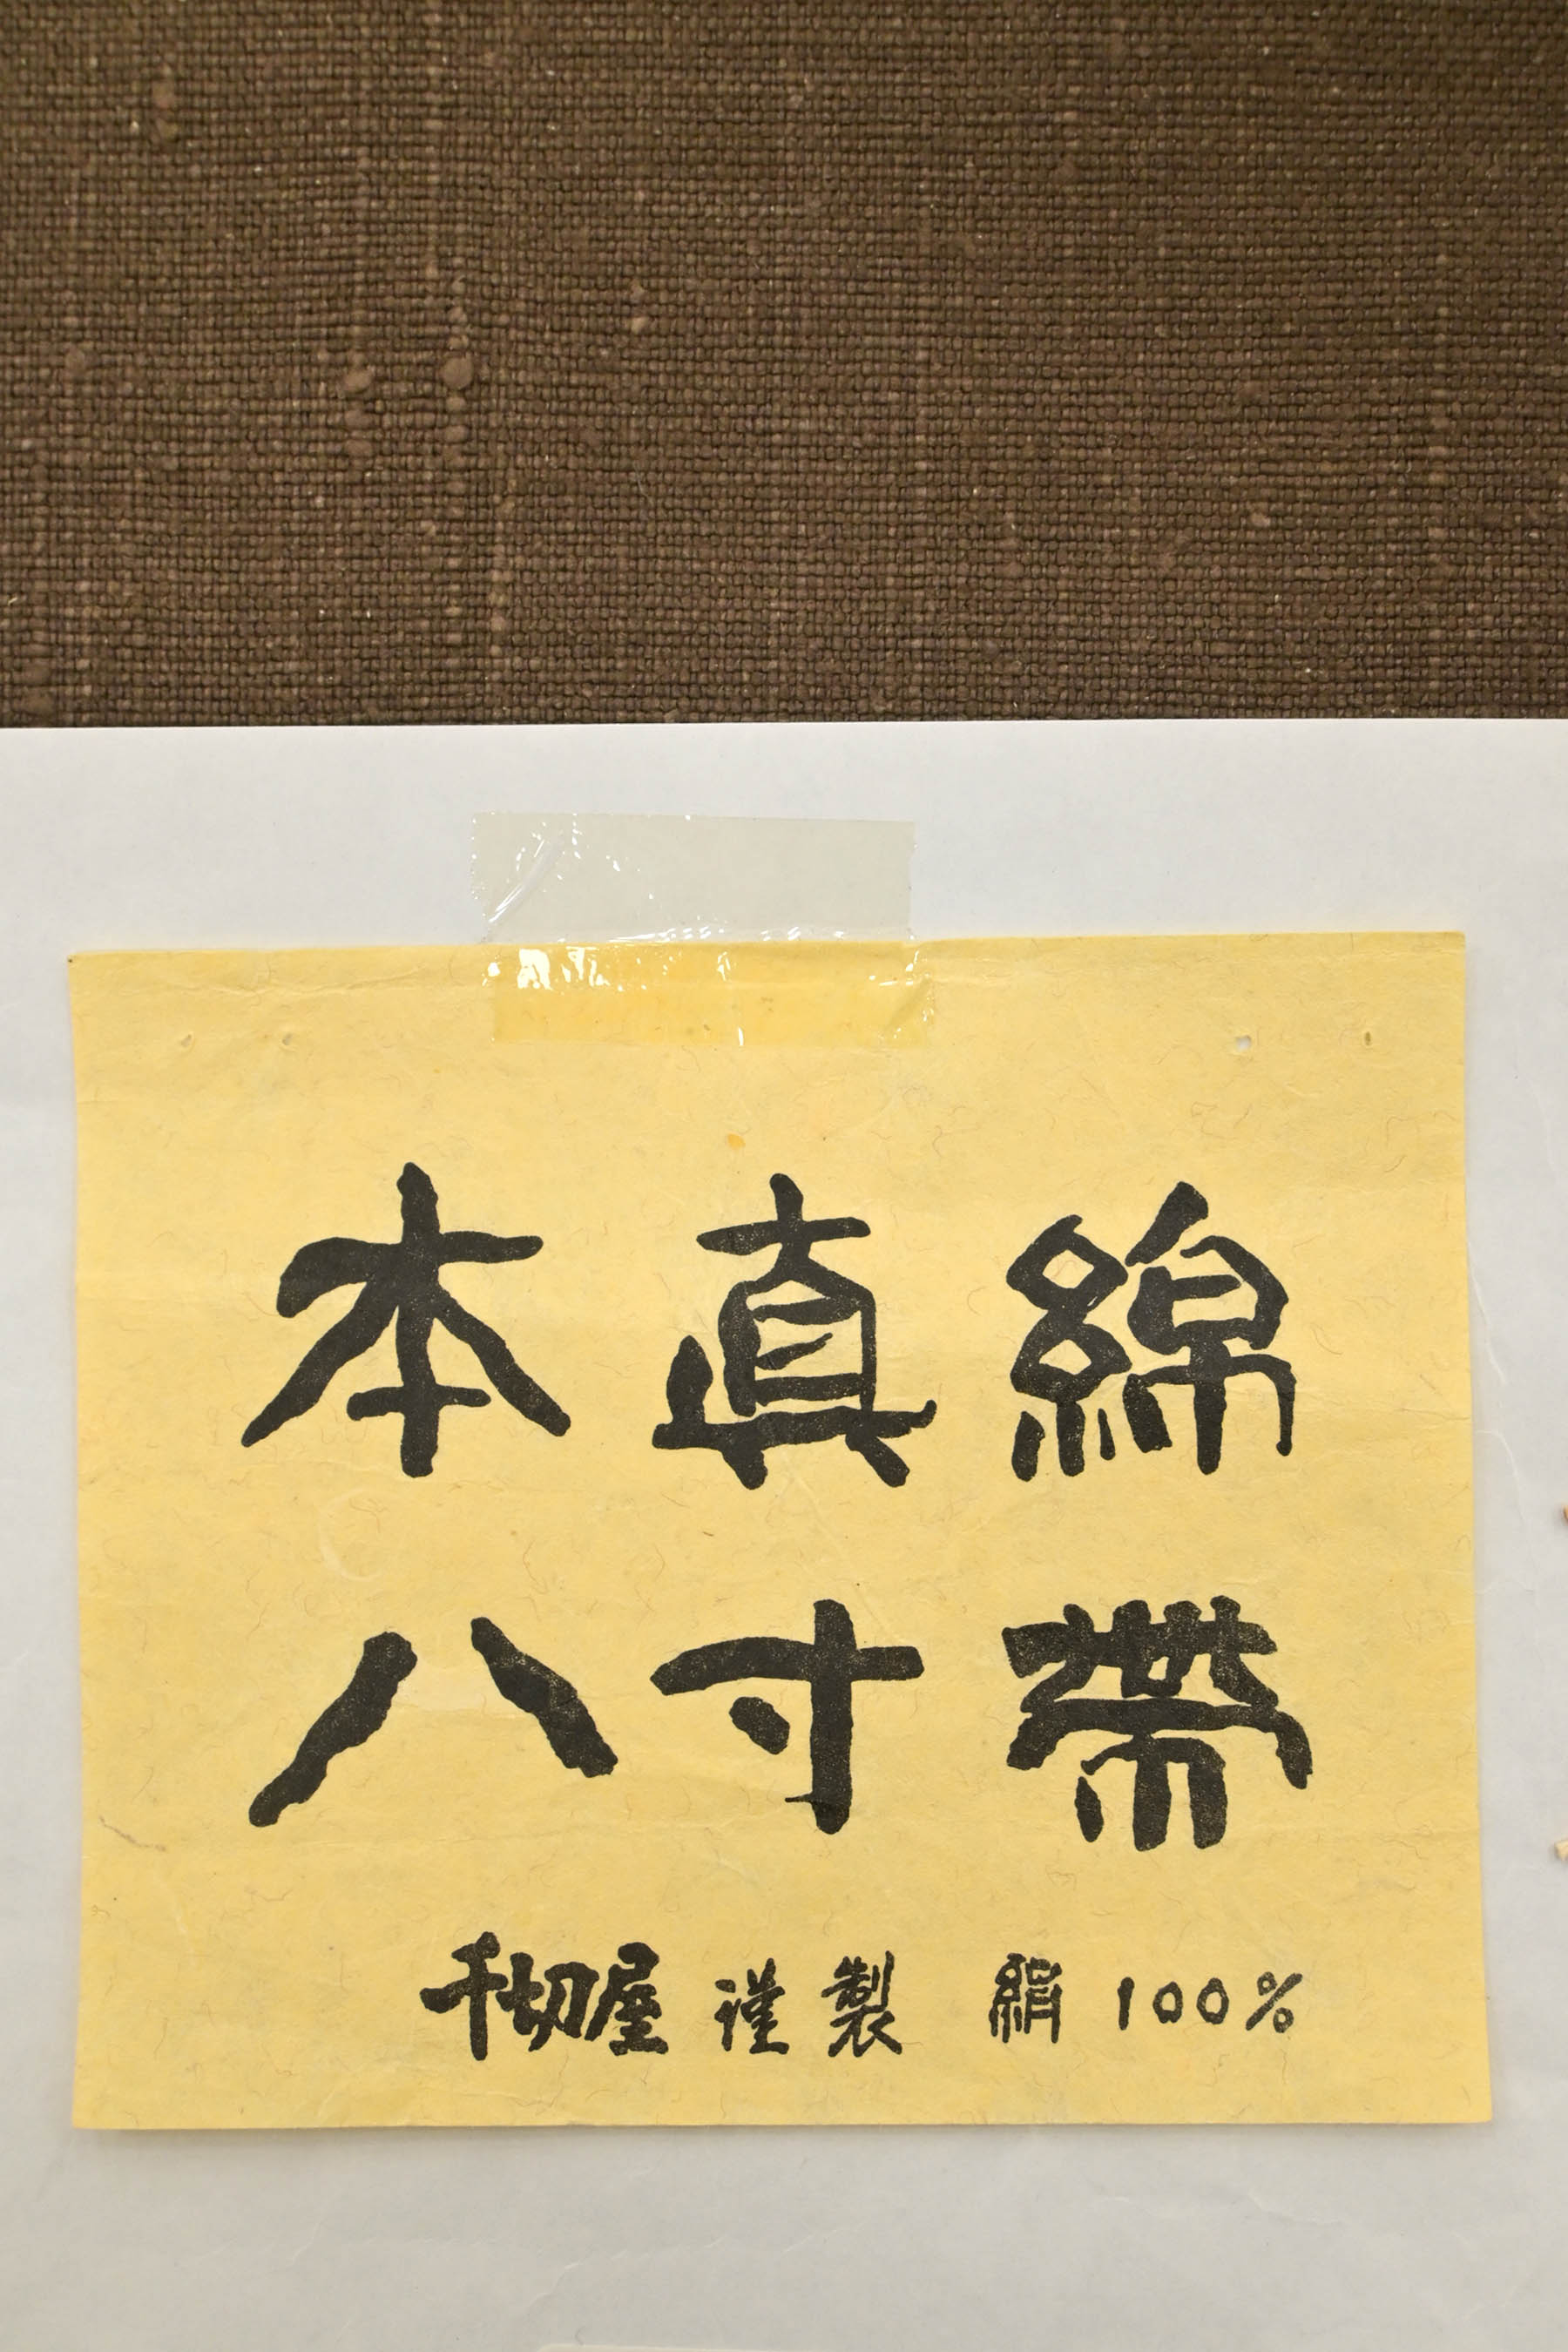 本真綿
八寸帯
千切屋 謹製 絹 100%